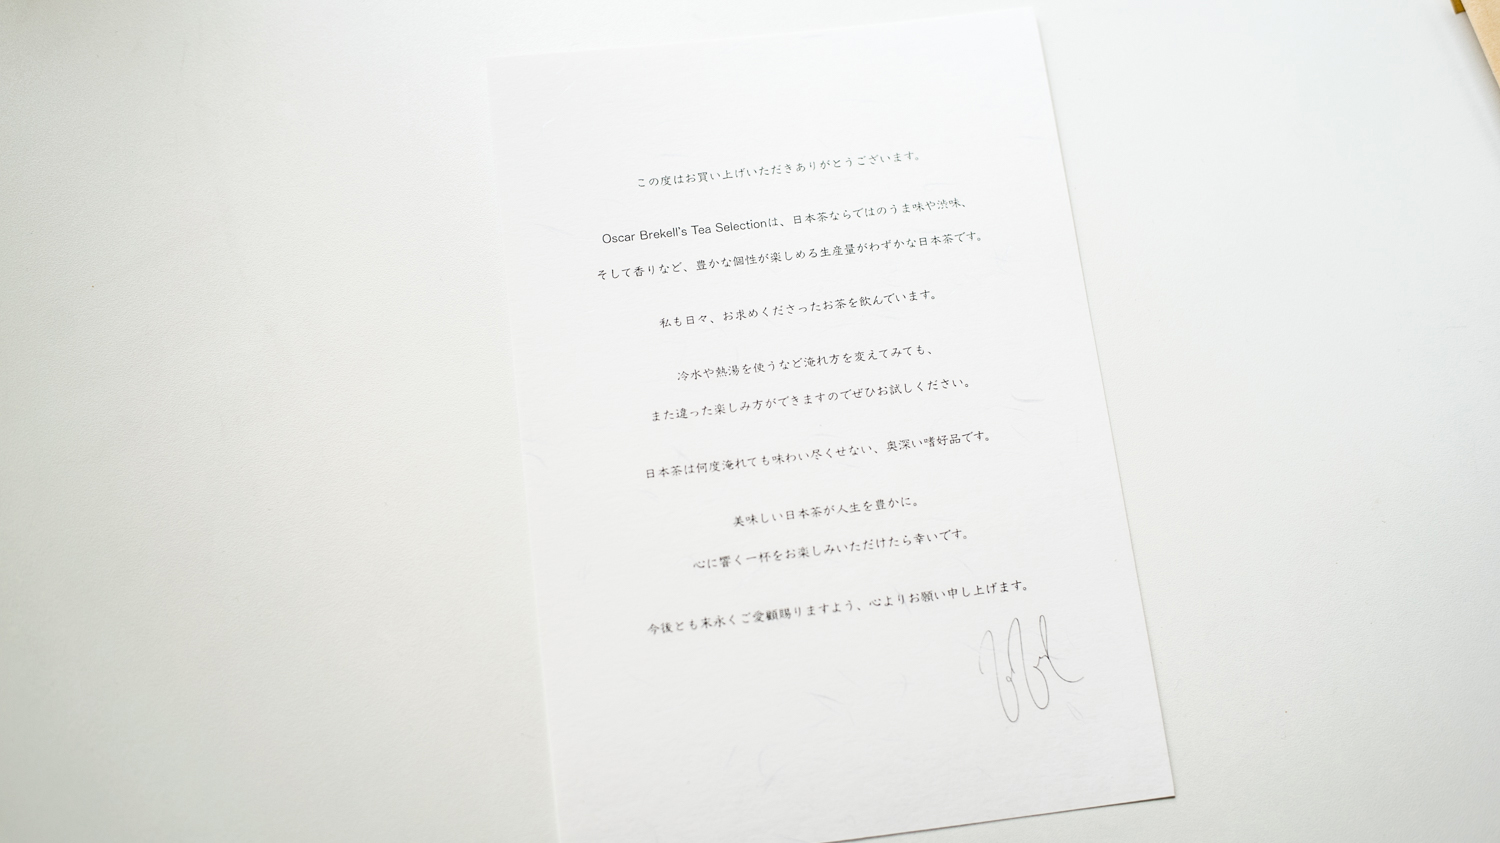 この度はお買い上げいただきありがとうございます。
Oscar Brekell's Tea Selectionは、日本茶ならではのうま味や渋味、
そして香りなど、豊かな個性が楽しめる生産量がわずかな日本茶です。
私も日々、お求めくださったお茶を飲んでいます。
冷水や熱湯を使うなど淹れ方を変えてみても、
また違った楽しみ方ができますのでぜひお試しください。
日本茶は何度淹れても味わい尽くせない、奥深い嗜好品です。
美味しい日本茶が人生を豊かに。
心に響く一杯をお楽しみいただけたら幸いです。
今後とも末永くご愛顧賜りますよう、心よりお願い申し上げます。